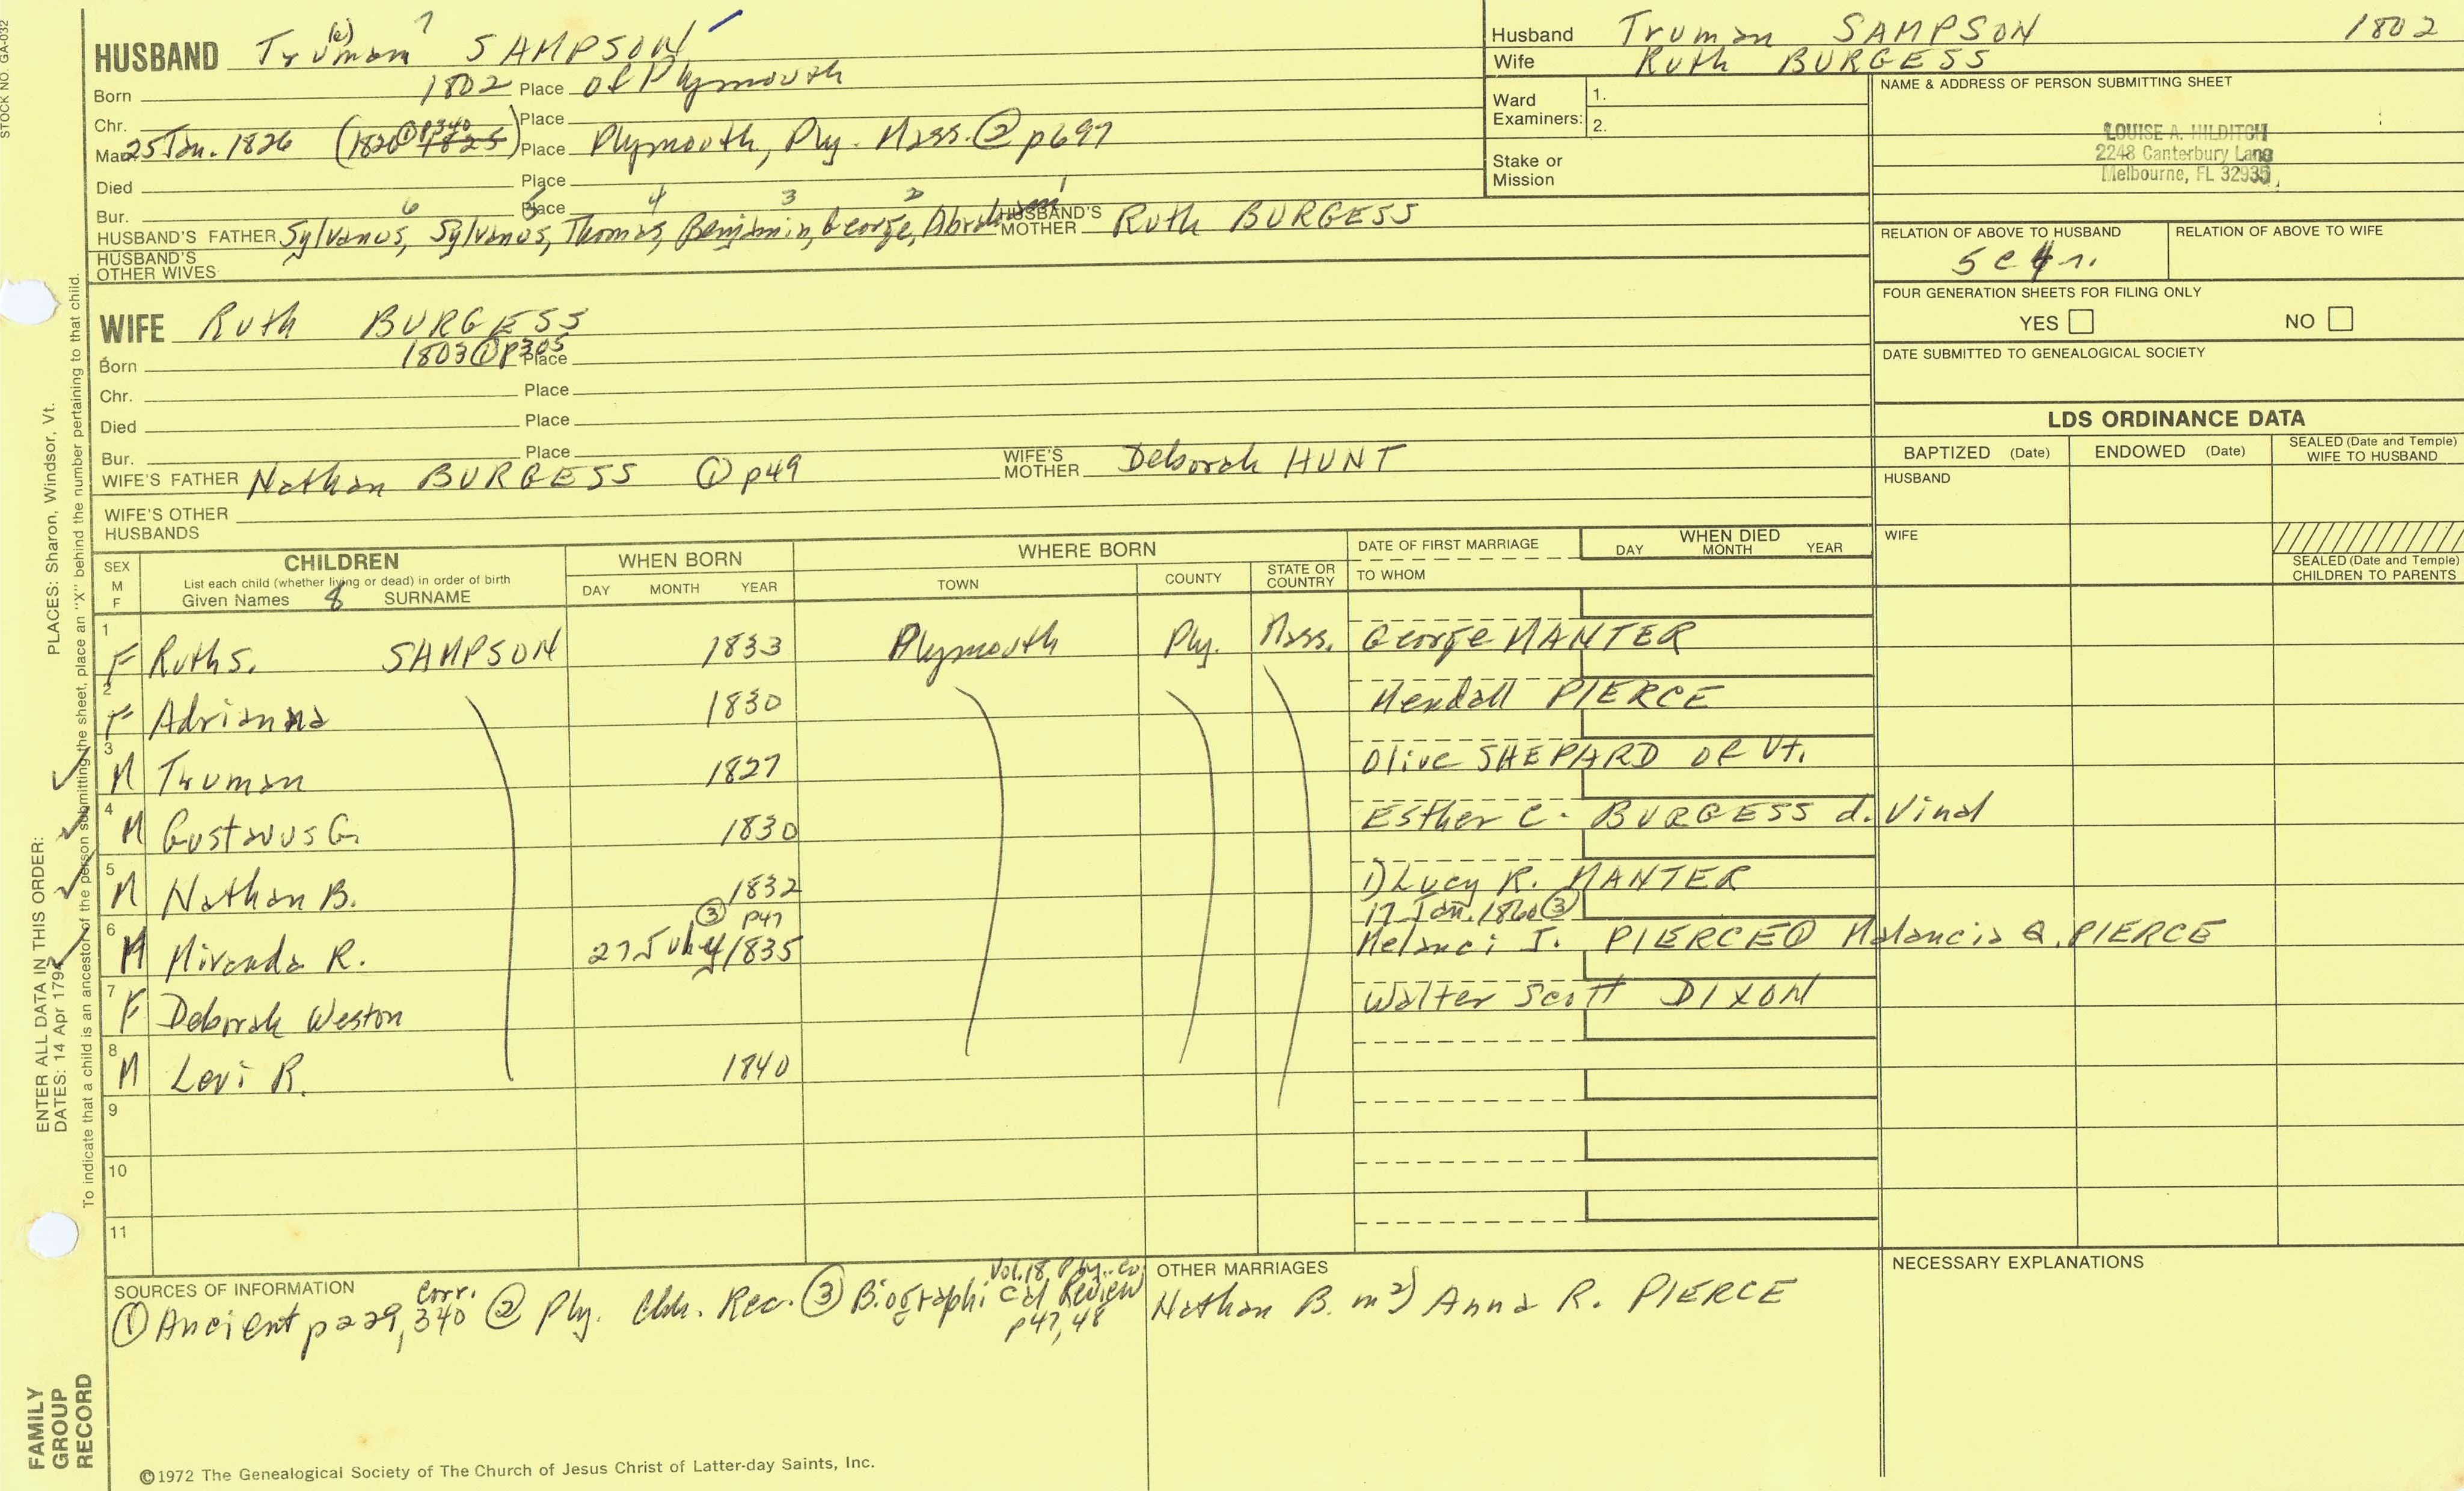 STOCK NO. GA-032
HUSBAND Truman (e) 7 SAMPSON
Born 1802 Place of Plymouth
Chr. Place
Mar 25 Jan. 1826 (1826 ① p340 1825) Place Plymouth, Ply. Mass. @ p697
Died Place
Bur. Place
6 5 4 3 2 1
HUSBAND'S FATHER Sylvanus, Sylvanus, Thomas, Benjamin, George, Abraham HUSBAND'S MOTHER Ruth BURGESS
HUSBAND'S OTHER WIVES
WIFE Ruth BURGESS
Born 1803 ① p305 Place
Chr. Place
Died Place
Bur. Place
WIFE'S FATHER Nathan BURGESS ① p49 WIFE'S MOTHER Deborah HUNT
WIFE'S OTHER HUSBANDS
Husband Truman SAMPSON 1802
Wife Ruth BURGESS
Ward Examiners: 1.
2.
Stake or Mission
NAME & ADDRESS OF PERSON SUBMITTING SHEET
LOUISE A. HILDITCH
2248 Canterbury Lane
Melbourne, FL 32935
RELATION OF ABOVE TO HUSBAND RELATION OF ABOVE TO WIFE
5 c 4 r.
FOUR GENERATION SHEETS FOR FILING ONLY
YES NO
DATE SUBMITTED TO GENEALOGICAL SOCIETY
LDS ORDINANCE DATA
BAPTIZED (Date) ENDOWED (Date) SEALED (Date and Temple) WIFE TO HUSBAND
HUSBAND
WIFE
SEALED (Date and Temple) CHILDREN TO PARENTS
SEX M F CHILDREN WHEN BORN WHERE BORN DATE OF FIRST MARRIAGE WHEN DIED
List each child (whether living or dead) in order of birth
Given Names 8 SURNAME DAY MONTH YEAR TOWN COUNTY STATE OR COUNTRY TO WHOM DAY MONTH YEAR
1 F Ruth S. SAMPSON 1833 Plymouth Ply. Mass. George MANTER
2 F Adrianna 1830 Mendall PIERCE
3 M Truman 1827 Olive SHEPARD of Vt.
4 M Gustavus G. 1830 Esther C. BURGESS d. Vinal
5 M Nathan B. 1832 1) Lucy R. MANTER
③ p47 17 Jan. 1860 ③
6 M Miranda R. 27 July 1835 Melanci J. PIERCE ① Malancia Q. PIERCE
7 F Deborah Weston Walter Scott DIXON
8 M Levi R. 1840
9
10
11
SOURCES OF INFORMATION
① Ancient p229, 340 corr. @ Ply. Chh. Rec. ③ Biographical Review Vol. 18 Ply. Co. p47, 48
OTHER MARRIAGES
Nathan B. m 2) Anna R. PIERCE
NECESSARY EXPLANATIONS
©1972 The Genealogical Society of The Church of Jesus Christ of Latter-day Saints, Inc.
FAMILY GROUP RECORD
ENTER ALL DATA IN THIS ORDER:
DATES: 14 Apr 1794
PLACES: Sharon, Windsor, Vt.
To indicate that a child is an ancestor of the person submitting the sheet, place an "X" behind the number pertaining to that child.